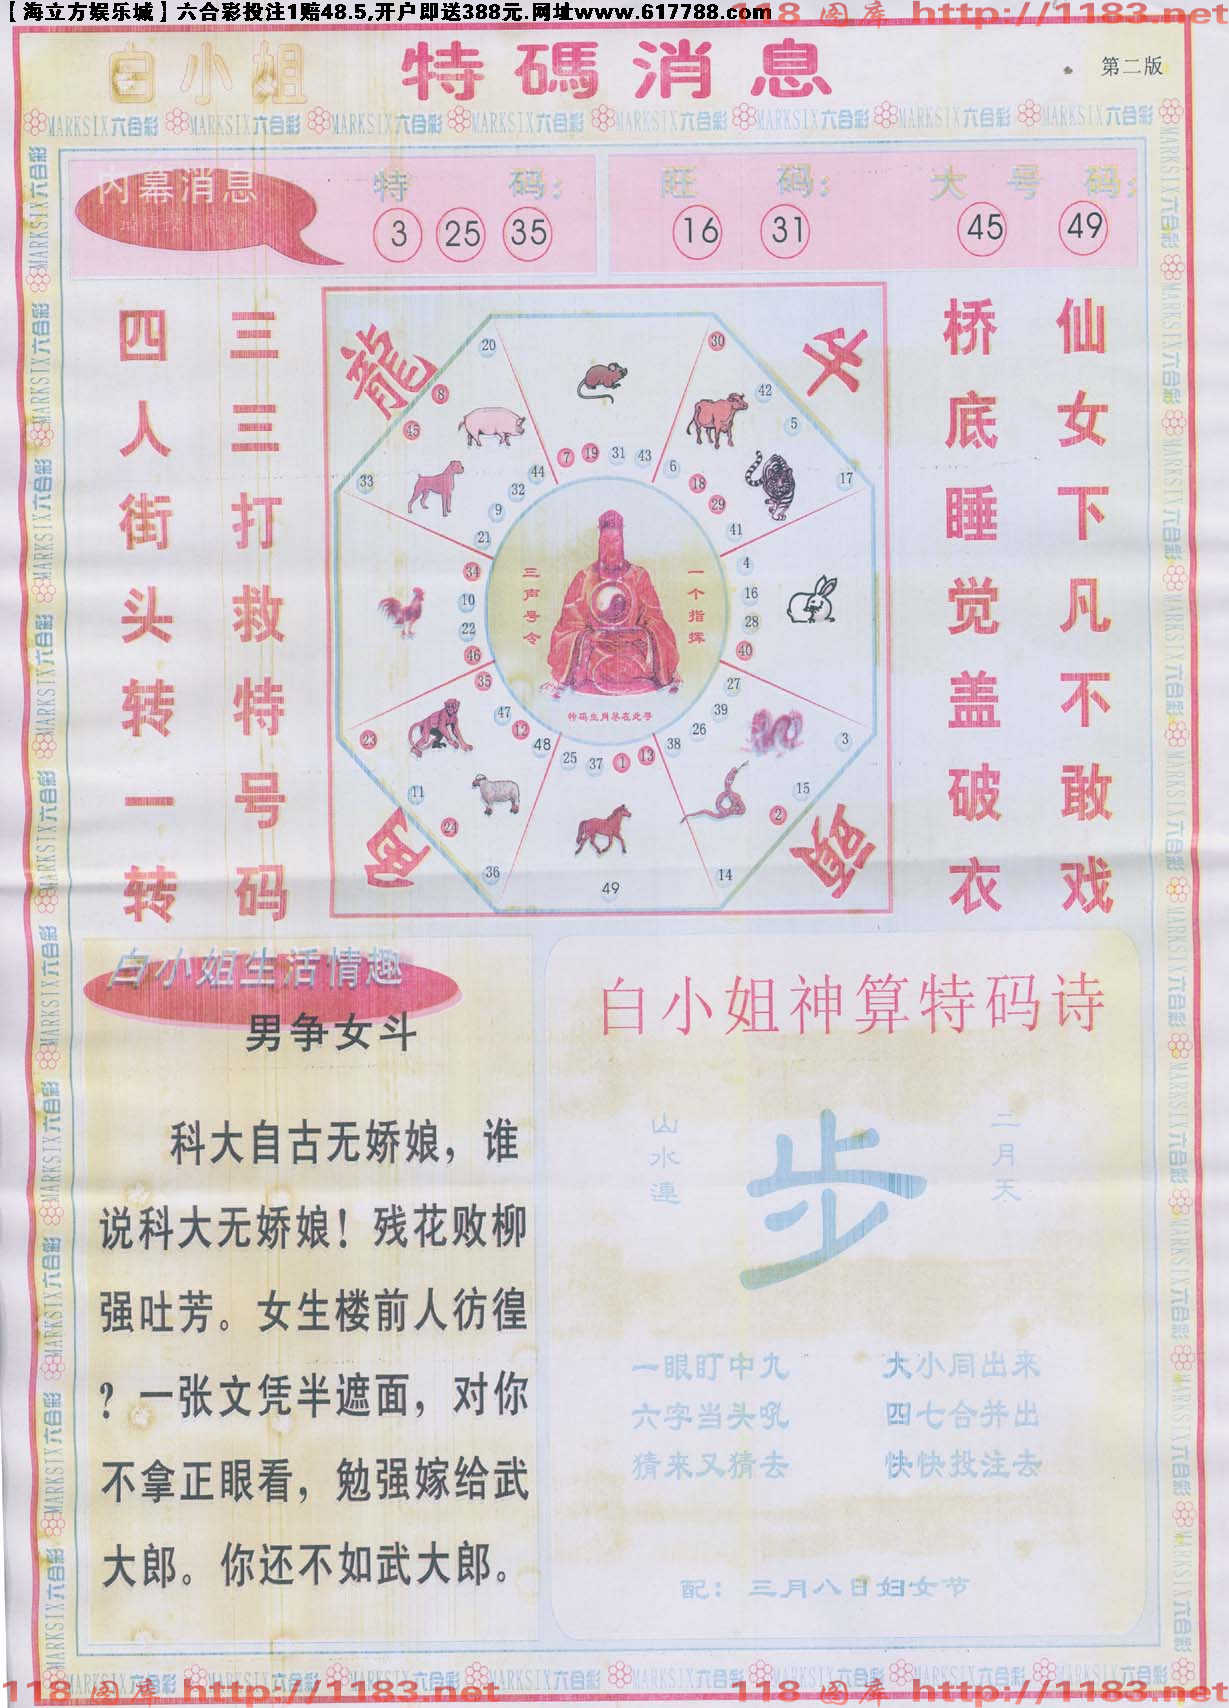 【海立方娱乐城】六合彩投注1赔48.5,开户即送388元.网址www.617788.com
118 图库 http://1183.net
白小姐 特碼消息
第二版
MARKSIX六合彩 MARKSIX六合彩 MARKSIX六合彩 MARKSIX六合彩 MARKSIX六合彩 MARKSIX六合彩 MARKSIX六合彩 MARKSIX六合彩
内幕消息
特 码:
3 25 35
旺 码:
16 31
大 号 码:
45 49
仙女下凡不敢戏
桥底睡觉盖破衣
三三打救特号码
四人街头转一转
龍
20
8
45
33
30
42
5
17
44
32
9
21
7 19 31 43
6
18
29
41
34
10
22
46
4
16
28
40
一个指挥
三声号令
特码生肖尽在此号
35
47
12
48
25 37 1 13
38
26
39
27
23
11
24
36
49
14
2
15
3
白小姐生活情趣
男争女斗
科大自古无娇娘，谁
说科大无娇娘！残花败柳
强吐芳。女生楼前人彷徨
？一张文凭半遮面，对你
不拿正眼看，勉强嫁给武
大郎。你还不如武大郎。
白小姐神算特码诗
二月天
步
山水連
一眼盯中九 大小同出来
六字当头吼 四七合并出
猜来又猜去 快快投注去
配：三月八日妇女节
118 图库 http://1183.net
118 图库 http://1183.net